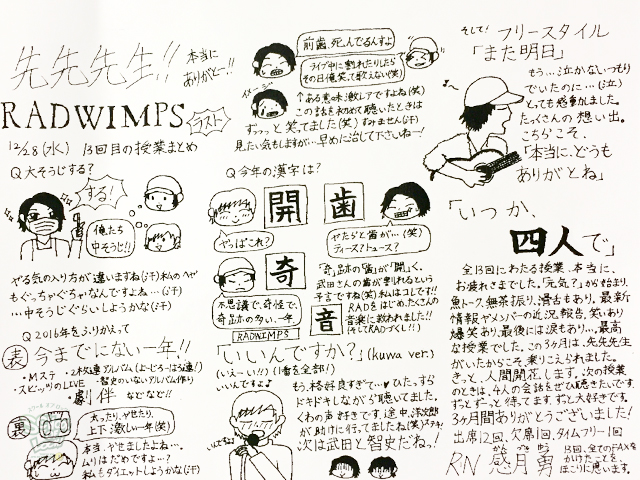 先先先生!!
本当に
ありがとー!!
RADWIMPS
ラスト
12/28(水) 13回目の授業まとめ
Q 大そうじする?
する!
俺たち
中そうじ!!
やる気の入り方が違いますね(汗)私のヘヤ
もぐっちゃぐちゃなんですよね…(汗)
…中そうじぐらいしようかな(汗)
Q 2016年をふりかえって
表 今までにない一年!!
・Mステ
・2枚連アルバム(よーじろーはら違!)
・スピッツのLIVE
・智史のいないアルバム作り
劇伴 などなど!!
裏
太ったり、ヤせたり、
上下激しい一年(笑)
本当、ヤせましたよね…、
ムリはだめですよ…?
私もダイエットしようかな(汗)
前歯、死んでるんすよ
ライブ中に割れたりしたら
その日俺笑って歌えない(笑)
↑ある意味激レアですよね(笑)
この話を初めて聴いたときは
ずっっっと笑ってました(笑)すみません(汗)
見たい気もしますが…早めに治して下さいねー!
Q 今年の漢字は?
開
歯
奇
音
やっぱこれ?
やたらと歯が…(笑)
ティース?トゥース?
不思議で、奇怪で、
奇跡の多い、一年
「奇」跡の「歯」が「開」く。
武田さんの歯が割れるという
予言ですね(笑)私はコレです!!
RADをはじめ、たくさんの
音楽に救われました!!
(そしてRADづくし!!)
RADWIMPS
「いいんですか?」(kuwa ver.)
(いえーい!!)(1番を全部!)
いいんですよ♪
もう、格好良すぎて…♥ひたっすら
ドキドキしながら聴いてました。
くわの声好きです。途中、洋次郎
が助けに行ってましたね(笑)ステキ!
次は武田と智史だねっ!
そして!
フリースタイル
「また明日」
もう…泣かないつもり
でいたのに…(泣)
とっても感動しました。
たっくさんの想い出。
こちらこそ、
「本当に…どうも
ありがとね」
「いつか、
四人で」
全13回にわたる授業、本当に、
お疲れさまでした。「元気?」が始まり、
魚トーク、無茶振り、滑舌もあり、最新
情報やメンバーの近況報告、笑いあり
爆笑あり、最後には涙もあり…、最高
な授業でした。この3か月は、先先先生
がいたからこそ乗りこえられました。
きっと、人間開花します。次の授業
のときは、4人の会話をぜひ聴きたいです。
ずっとずーっと待ってます。ずっと大好きです。
3ヶ月間ありがとうございました!
出席12回、欠席1回、タイムフリー1回
RN 惑月勇
13回、全てのFAXを
かけたことを、
ほこりに思います。